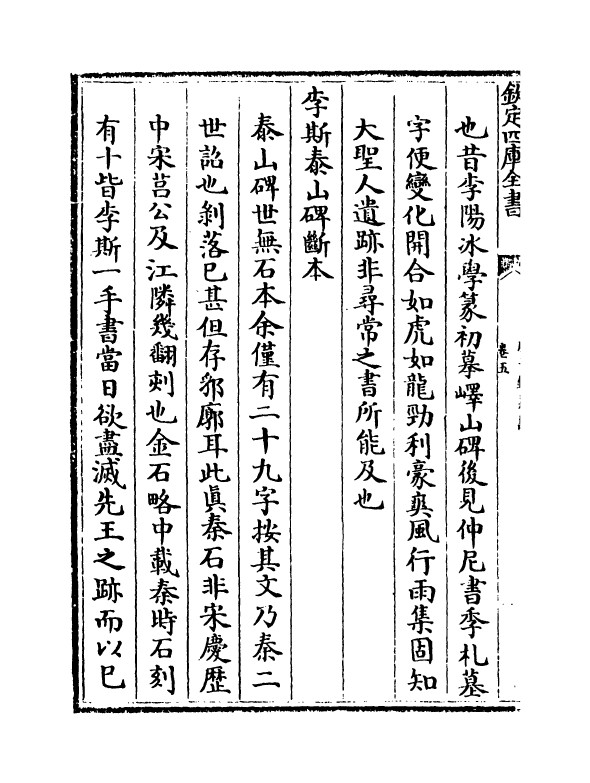 欽定四庫全書
卷五
也昔李陽冰學篆初摹嶧山碑後見仲尼書季札墓
字便變化開合如虎如龍勁利豪爽風行雨集固知
大聖人遺跡非尋常之書所能及也
李斯泰山碑斷本
泰山碑世無石本余僅有二十九字按其文乃秦二
世詔也剝落已甚但存郛廓耳此眞秦石非宋慶歴
中宋莒公及江隣幾翻刻也金石略中載秦時石刻
有十皆李斯一手書當日欲盡滅先王之跡而以巳